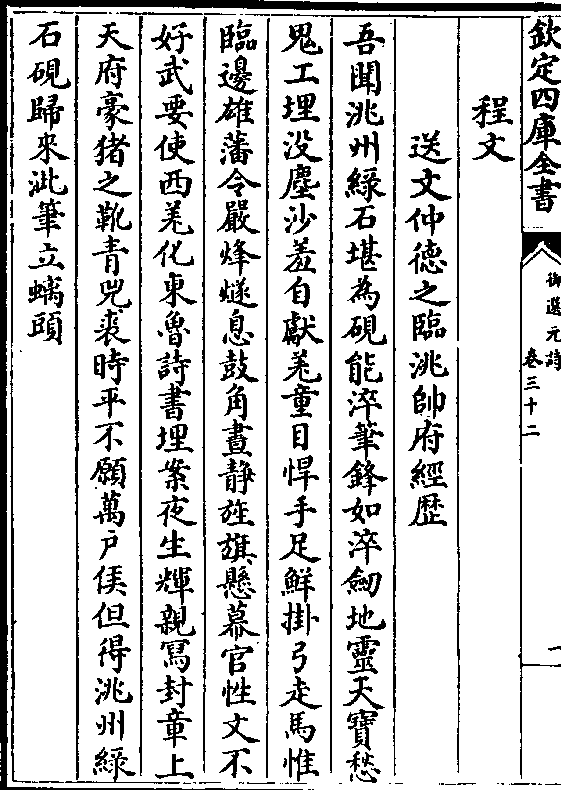 欽定四庫全書
御選元詩
卷三十二
一
程文
送文仲德之臨洮帥府經歴
吾聞洮州綠石堪為硯能淬筆鋒如淬劒地靈天寶愁
鬼工埋没塵沙羞自獻羌童目悍手足鮮掛弓走馬惟
臨邊雄藩令嚴烽燧息鼓角晝靜旌旗懸幕官性文不
好武要使西羌化東魯詩書埋案夜生輝親冩封章上
天府豪猪之靴青兕裘時平不願萬户侯但得洮州綠
石硯歸來泚筆立螭頭